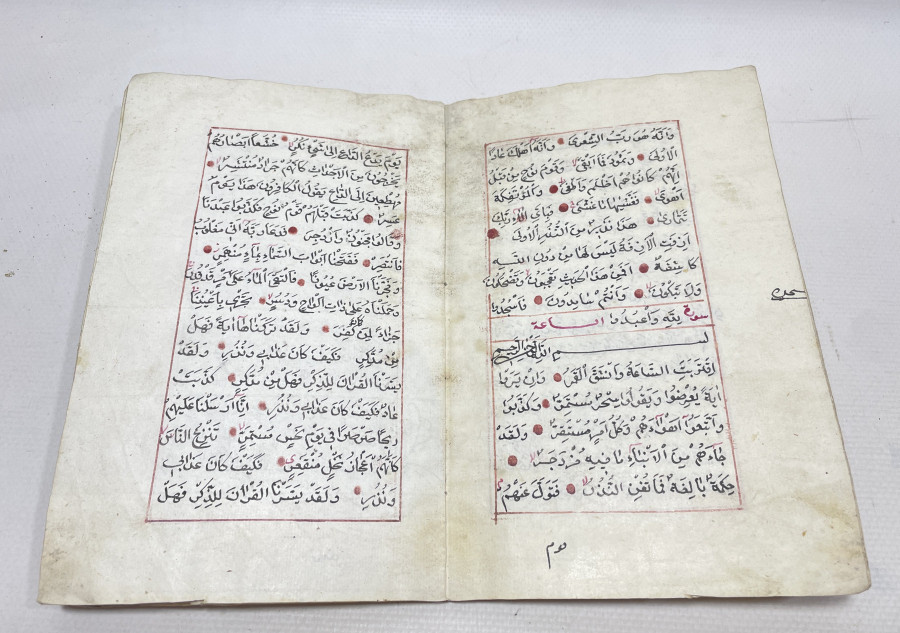 وَاَنَّهُ هُوَ رَبُّ الشِّعْرٰى وَاَنَّهُ اَهْلَكَ عَادًا
الْاُولٰى وَثَمُودَ فَمَا اَبْقٰى وَقَوْمَ نُوحٍ مِنْ قَبْلُ
اِنَّهُمْ كَانُوا هُمْ اَظْلَمَ وَاَطْغٰى وَالْمُؤْتَفِكَةَ
اَهْوٰى فَغَشّٰيهَا مَا غَشّٰى فَبِاَىِّ اٰلَاءِ رَبِّكَ
تَتَمَارٰى هٰذَا نَذِيرٌ مِنَ النُّذُرِ الْاُولٰى
اَزِفَتِ الْاٰزِفَةُ لَيْسَ لَهَا مِنْ دُونِ اللّٰهِ
كَاشِفَةٌ اَفَمِنْ هٰذَا الْحَدِيثِ تَعْجَبُونَ وَتَضْحَكُونَ
وَلَا تَبْكُونَ وَاَنْتُمْ سَامِدُونَ فَاسْجُدُوا
سورة لِلّٰهِ وَاعْبُدُوا الساعة
بســـــم اللّٰه الرحمن الرحيم
اِقْتَرَبَتِ السَّاعَةُ وَانْشَقَّ الْقَمَرُ وَاِنْ يَرَوْا
اٰيَةً يُعْرِضُوا وَيَقُولُوا سِحْرٌ مُسْتَمِرٌّ وَكَذَّبُوا
وَاتَّبَعُوا اَهْوَاءَهُمْ وَكُلُّ اَمْرٍ مُسْتَقِرٌّ وَلَقَدْ
جَاءَهُمْ مِنَ الْاَنْبَاءِ مَا فِيهِ مُزْدَجَرٌ
حِكْمَةٌ بَالِغَةٌ فَمَا تُغْنِ النُّذُرُ فَتَوَلَّ عَنْهُمْ
يَوْمَ يَدْعُ الدَّاعِ اِلٰى شَىْءٍ نُكُرٍ خُشَّعًا اَبْصَارُهُمْ
يَخْرُجُونَ مِنَ الْاَجْدَاثِ كَاَنَّهُمْ جَرَادٌ مُنْتَشِرٌ
مُهْطِعِينَ اِلَى الدَّاعِ يَقُولُ الْكَافِرُونَ هٰذَا يَوْمٌ
عَسِرٌ كَذَّبَتْ قَبْلَهُمْ قَوْمُ نُوحٍ فَكَذَّبُوا عَبْدَنَا
وَقَالُوا مَجْنُونٌ وَازْدُجِرَ فَدَعَا رَبَّهُ اَنّٖى مَغْلُوبٌ
فَانْتَصِرْ فَفَتَحْنَا اَبْوَابَ السَّمَاءِ بِمَاءٍ مُنْهَمِرٍ
وَفَجَّرْنَا الْاَرْضَ عُيُونًا فَالْتَقَى الْمَاءُ عَلٰى اَمْرٍ قَدْ قُدِرَ
وَحَمَلْنَاهُ عَلٰى ذَاتِ اَلْوَاحٍ وَدُسُرٍ تَجْرٖى بِاَعْيُنِنَا
جَزَاءً لِمَنْ كَانَ كُفِرَ وَلَقَدْ تَرَكْنَاهَا اٰيَةً فَهَلْ
مِنْ مُدَّكِرٍ فَكَيْفَ كَانَ عَذَابٖى وَنُذُرِ وَلَقَدْ
يَسَّرْنَا الْقُرْاٰنَ لِلذِّكْرِ فَهَلْ مِنْ مُدَّكِرٍ كَذَّبَتْ
عَادٌ فَكَيْفَ كَانَ عَذَابٖى وَنُذُرِ اِنَّا اَرْسَلْنَا عَلَيْهِمْ
رِيحًا صَرْصَرًا فٖى يَوْمِ نَحْسٍ مُسْتَمِرٍّ تَنْزِعُ النَّاسَ
كَاَنَّهُمْ اَعْجَازُ نَخْلٍ مُنْقَعِرٍ فَكَيْفَ كَانَ عَذَابٖى
وَنُذُرِ وَلَقَدْ يَسَّرْنَا الْقُرْاٰنَ لِلذِّكْرِ فَهَلْ